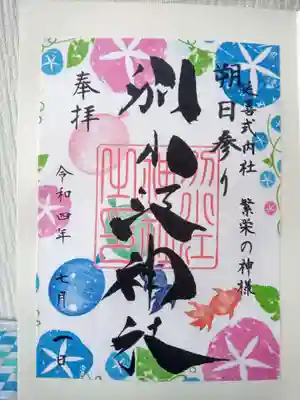 延喜式内社 繁栄の神様
朔日参り
別小江神社
奉拝
令和四年 七月 一日